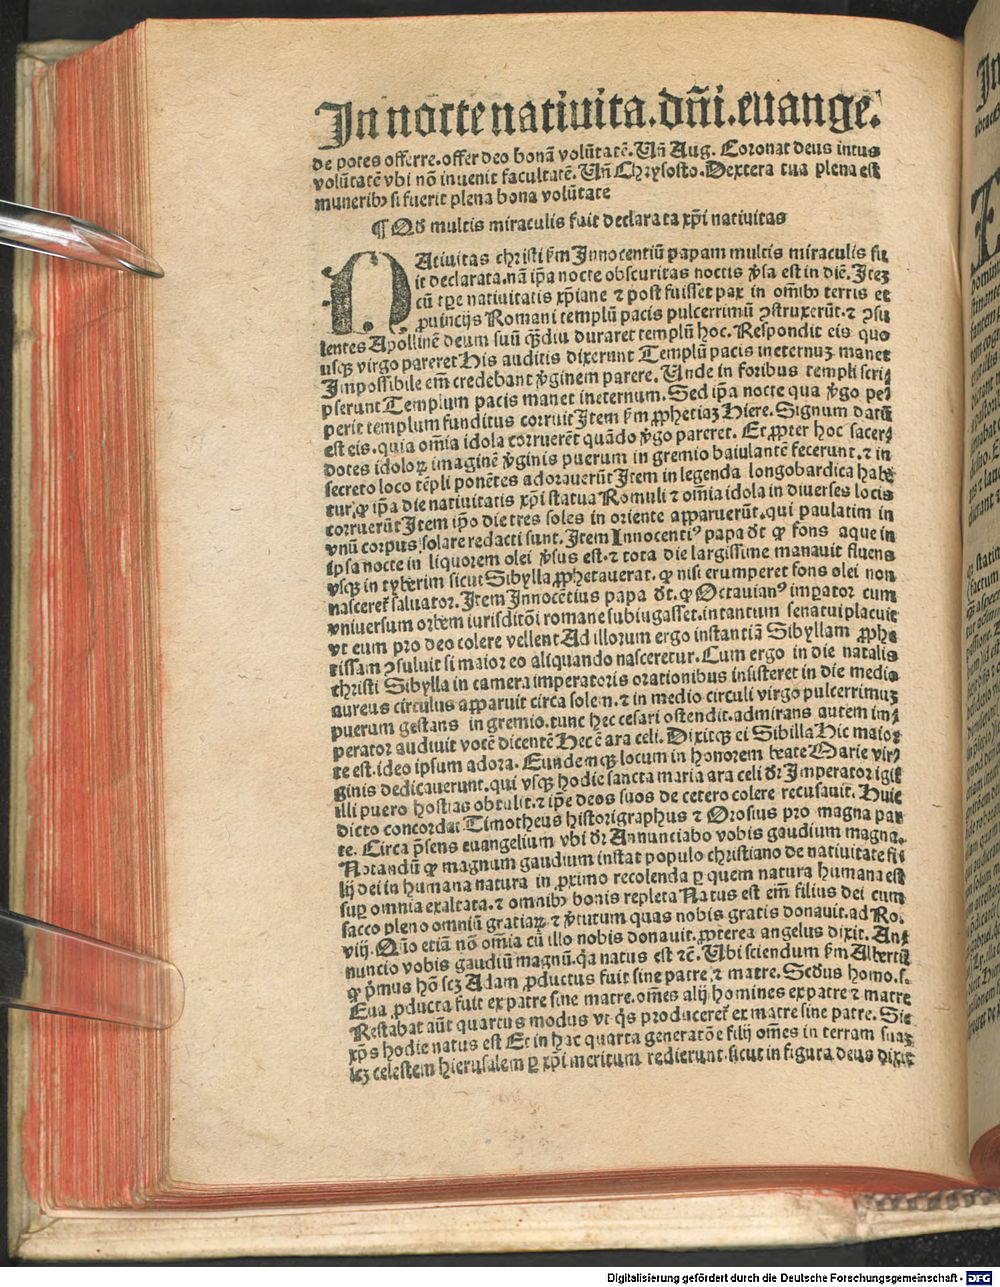 In nocte natiuita.dñi.euange.
de potes offerre.offer deo bonā volūtatē.Uñ Aug. Coronat deus intus
volūtatē vbi nō inuenit facultatē.Uñ Chrysosto.Dextera tua plena est
muneribꝰ si fuerit plena bona volūtate
¶ Qđ multis miraculis fuit declarata xp̄i natiuitas
NAtiuitas christi ẜm Innocentiū papam multis miraculis fu
it declarata.nā ip̄a nocte obscuritas noctis ꝟsa est in diē.Itēꝫ
cū tꝑe natiuitatis xp̄iane ⁊ post fuisset pax in om̄ibꝰ terris et
ꝓuincijs Romani templū pacis pulcerrimū ꝯstruxerūt.⁊ ꝯsu
lentes Apollinē deum suū qͣꝫdiu duraret templū hoc.Respondit eis quo
usqꝫ virgo pareret His auditis dixerunt Templū pacis ineternuꝫ manet
Impossibile em̄ credebant ꝟginem parere. Unde in foribus templi scri/
pserunt Templum pacis manet ineternum.Sed ip̄a nocte qua ꝟgo pe/
perit templum funditus corruit Item ẜm ꝓphetiaꝫ Hiere. Signum datū
est eis.quia om̄ia idola corruerēt quādo ꝟgo pareret. Et ꝓpter hoc sacer/
dotes idoloꝝ imaginē ꝟginis puerum in gremio baiulantē fecerunt.⁊ in
secreto loco tēpli ponētes adorauerūt Item in legenda longobardica habe
tur.ꝙ ip̄a die natiuitatis xp̄i statua Romuli ⁊ om̄ia idola in diuerses locis
corruerūt Item ip̄o die tres soles in oriente apparuerūt.qui paulatim in
vnū corpus solare redacti sunt. Item Innocentiꝰ papa dt̄ ꝙ fons aque in
ipsa nocte in liquorem olei ꝟsus est.⁊ tota die largissime manauit fluens
vsqꝫ in tyberim sicut Sibylla ꝓphetauerat.ꝙ nisi erumperet fons olei non
nasceret̄ saluator.Item Innocētius papa dt̄.ꝙ Octauianꝰ imꝑator cum
vniuersum orbem iurisditōi romane subiugasset.intantum senatui placuit
vt eum pro deo colere vellent Ad illorum ergo instantiā Sibyllam ꝓphe
tissam ꝯsuluit si maior eo aliquando nasceretur.Cum ergo in die natalis
christi Sibylla in camera imperatoris orationibus insisteret in die media
aureus circulus apparuit circa solem.⁊ in medio circuli virgo pulcerrimuꝫ
puerum gestans in gremio.tunc hec cesari ostendit.admirans autem im/
perator audiuit vocē dicentē Hec ē ara celi. Dixitqꝫ ei Sibilla Hic maior
te est.ideo ipsum adora. Eundemqꝫ locum in honorem beate Marie vir/
ginis dedicauerunt.qui vsqꝫ hodie sancta maria ara celi dr̄ Imperator igit̄
illi puero hostias obtulit.⁊ ip̄e deos suos de cetero colere recusauit. Huic
dicto concordat Timotheus historigraphus ⁊ Orosius pro magna par
te. Circa p̄sens euangelium vbi dr̄ Annunciabo vobis gaudium magna.
Notandū ꝙ magnum gaudium instat populo christiano de natiuitate fi/
lij dei in humana natura in ꝓximo recolenda ꝑ quem natura humana est
suꝑ omnia exaltata.⁊ omnibꝰ bonis repleta Natus est em̄ filius dei cum
sacco pleno omniū gratiaꝝ ⁊ ꝟtutum quas nobis gratis donauit.ad Ro.
viij.Quō etiā nō om̄ia cū illo nobis donauit.ꝓpterea angelus dixit. An/
nuncio vobis gaudiū magnū.qꝛ natus est ⁊cͣ. Ubi sciendum ẜm Albertū
ꝙ p̄mus hō scꝫ Adam ꝓductus fuit sine patre ⁊ matre. Secūdus homo.s.
Eua ꝓducta fuit ex patre sine matre.om̄es alij homines ex patre ⁊ matre
Restabat aūt quartus modus vt qͥs produceret̄ ex matre sine patre. Sic
xp̄s hodie natus est Et in hac quarta generatōe filij om̄es in terram suaꝫ
scꝫ celestem hierusalem ꝑ xp̄i meritum redierunt.sicut in figura deus dixit
Digitalisierung gefördert durch die Deutsche Forschungsgemeinschaft - DFG